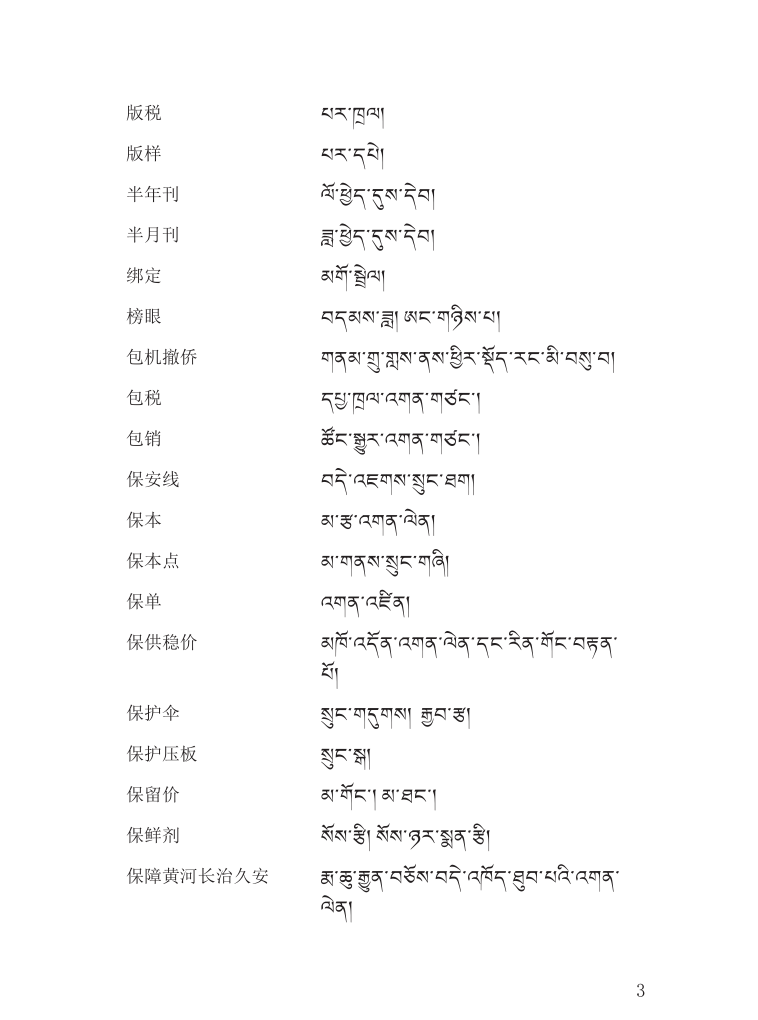 版税 པར་ཁྲལ།
版样 པར་དཔེ།
半年刊 ལོ་ཕྱེད་དུས་དེབ།
半月刊 ཟླ་ཕྱེད་དུས་དེབ།
绑定 མགོ་སྦྲེལ།
榜眼 བདམས་ཟླ། ཨང་གཉིས་པ།
包机撤侨 གནམ་གྲུ་གླས་ནས་ཕྱིར་སྡོད་རང་མི་བསུ་བ།
包税 དཔྱ་ཁྲལ་འགན་གཙང་།
包销 ཚོང་སྒྱུར་འགན་གཙང་།
保安线 བདེ་འཇགས་སྲུང་ཐག།
保本 མ་རྩ་འགན་ལེན།
保本点 མ་གནས་སྲུང་གཞི།
保单 འགན་འཛིན།
保供稳价 མཁོ་འདོན་འགན་ལེན་དང་རིན་གོང་བརྟན་
པོ།
保护伞 སྲུང་གདུགས། རྒྱབ་རྩ།
保护压板 སྲུང་སྒ།
保留价 མ་གོང་། མ་ཐང་།
保鲜剂 སོས་རྩི། སོས་ཉར་སྨན་རྩི།
保障黄河长治久安 རྨ་ཆུ་རྒྱུན་བཅོས་བདེ་འཁོད་ཐུབ་པའི་འགན་
ལེན།
3